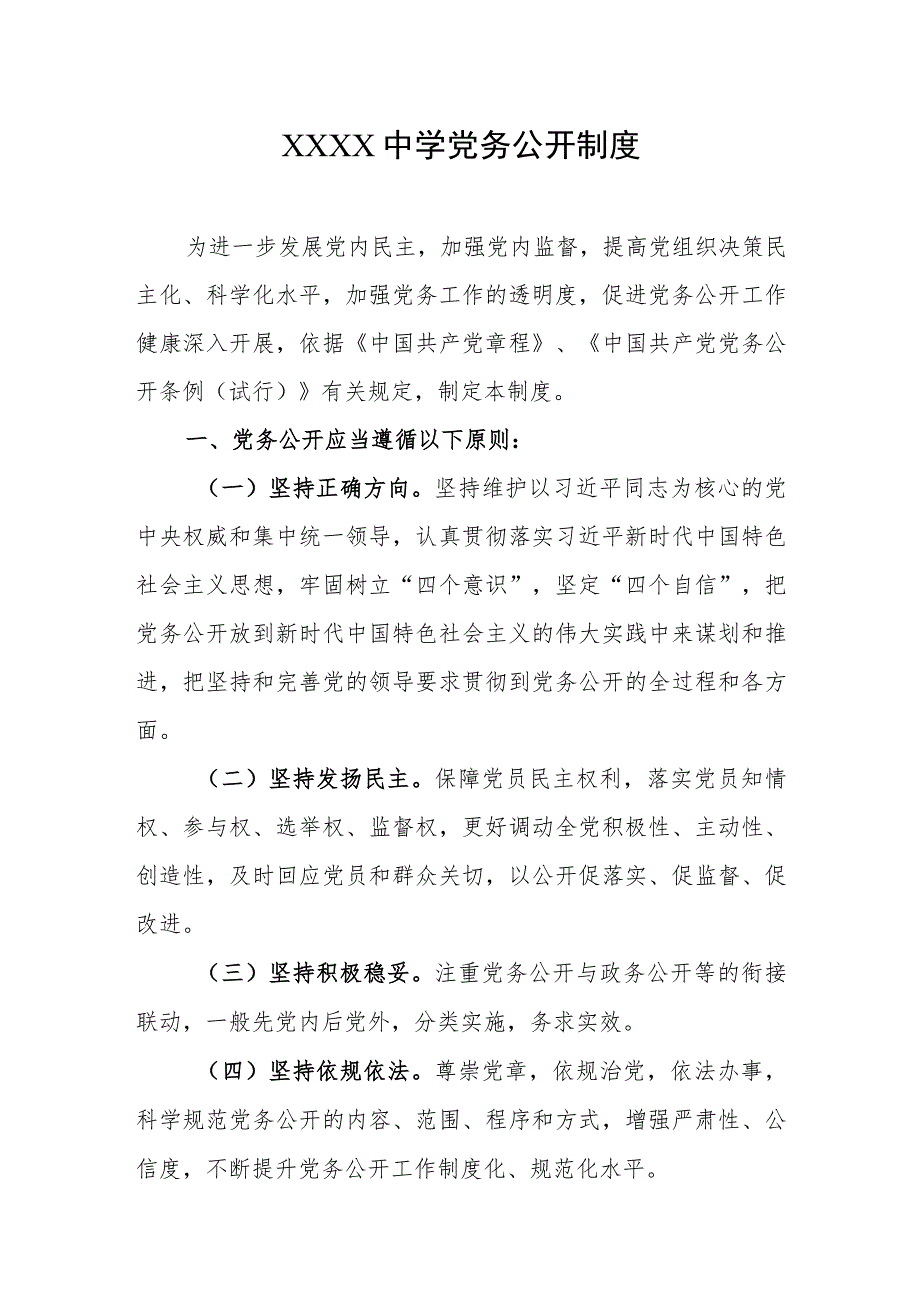 XXXX 中学党务公开制度
为进一步发展党内民主，加强党内监督，提高党组织决策民
主化、科学化水平，加强党务工作的透明度，促进党务公开工作
健康深入开展，依据《中国共产党章程》、《中国共产党党务公
开条例（试行）》有关规定，制定本制度。
一、党务公开应当遵循以下原则：
（一）坚持正确方向。坚持维护以习近平同志为核心的党
中央权威和集中统一领导，认真贯彻落实习近平新时代中国特色
社会主义思想，牢固树立“四个意识”，坚定“四个自信”，把
党务公开放到新时代中国特色社会主义的伟大实践中来谋划和推
进，把坚持和完善党的领导要求贯彻到党务公开的全过程和各方
面。
（二）坚持发扬民主。保障党员民主权利，落实党员知情
权、参与权、选举权、监督权，更好调动全党积极性、主动性、
创造性，及时回应党员和群众关切，以公开促落实、促监督、促
改进。
（三）坚持积极稳妥。注重党务公开与政务公开等的衔接
联动，一般先党内后党外，分类实施，务求实效。
（四）坚持依规依法。尊崇党章，依规治党，依法办事，
科学规范党务公开的内容、范围、程序和方式，增强严肃性、公
信度，不断提升党务公开工作制度化、规范化水平。